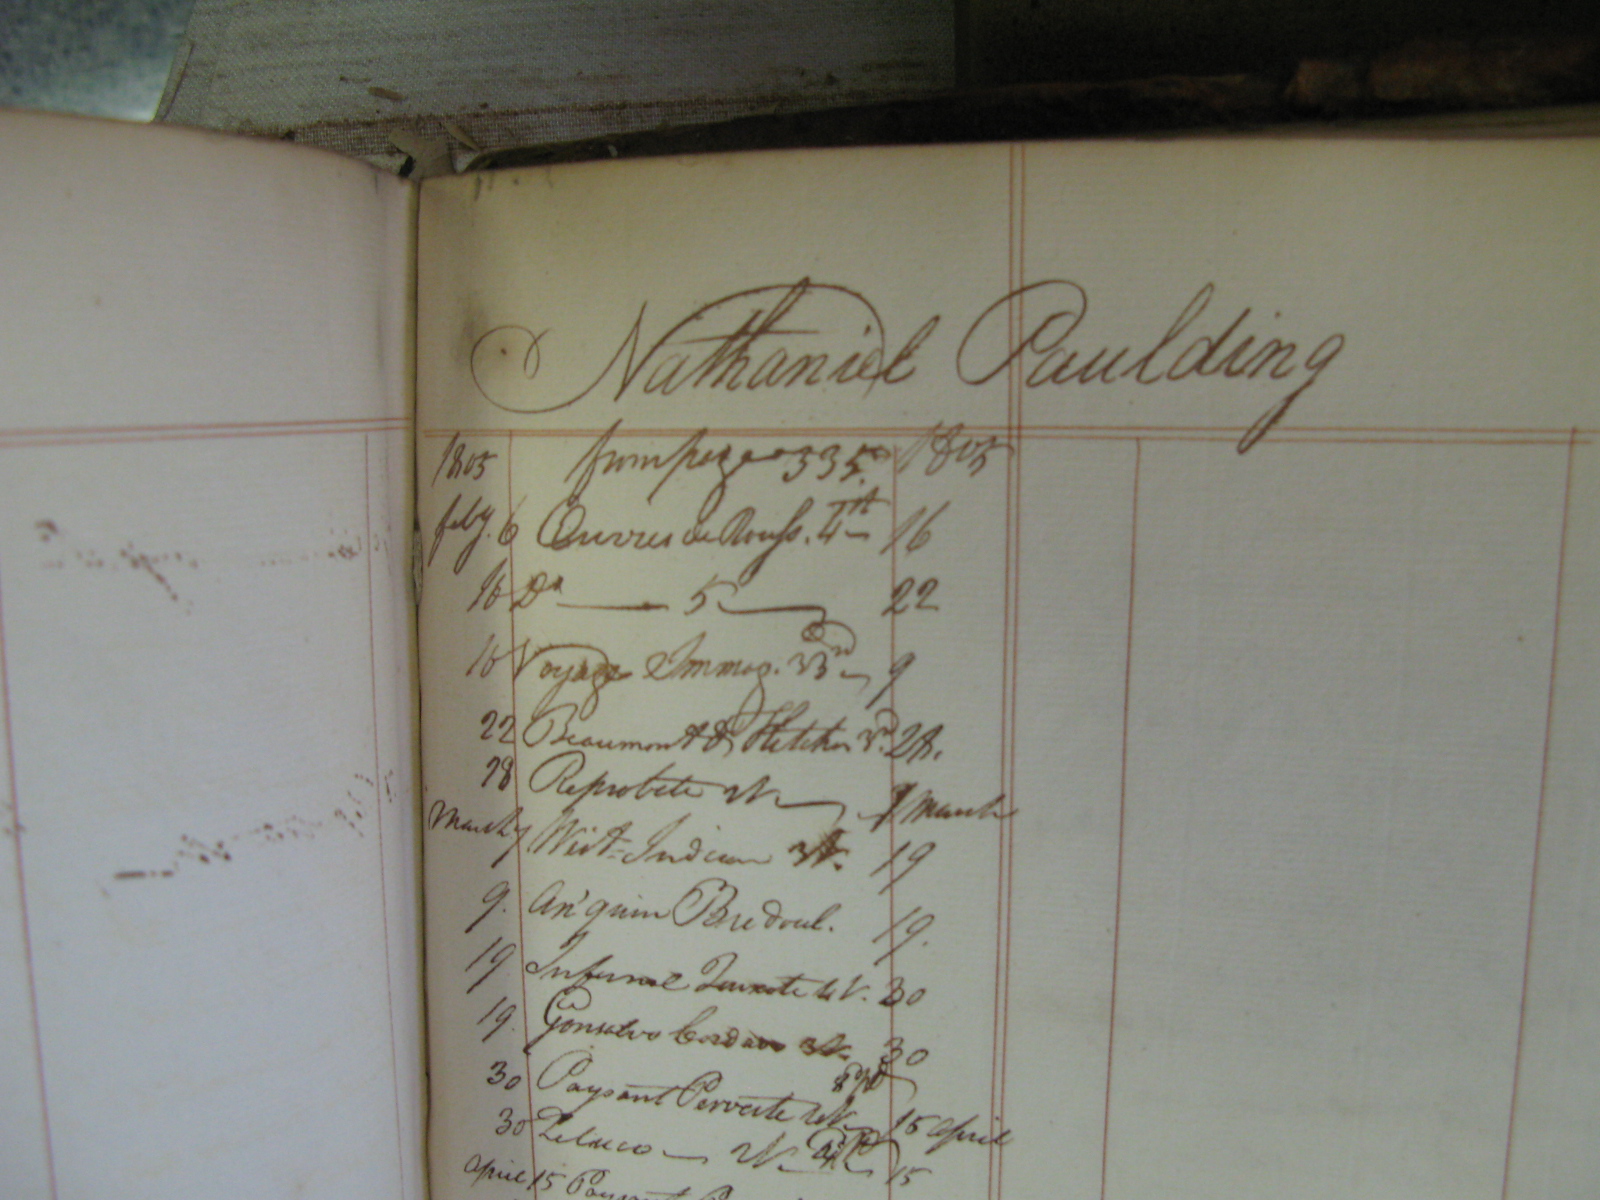 Nathaniel Paulding
1805 from page 335 1805
feby. 6 Œuvres de Rouss. 4th 16
16 Do 5 22
16 Voyage Immag. 33rd 9
22 Beaumont & Fletcher 3d. 24.
28 Reprobate 2V. 7 March
March 7 West-Indian 19
9. An'quin Bredoul. 19.
19 Infernal Quixote 4V. 30
19. Gonsalvo 30
30 Paysant Perverte 15 april
30 Zeluco 2V. 15
april 15 Paysant